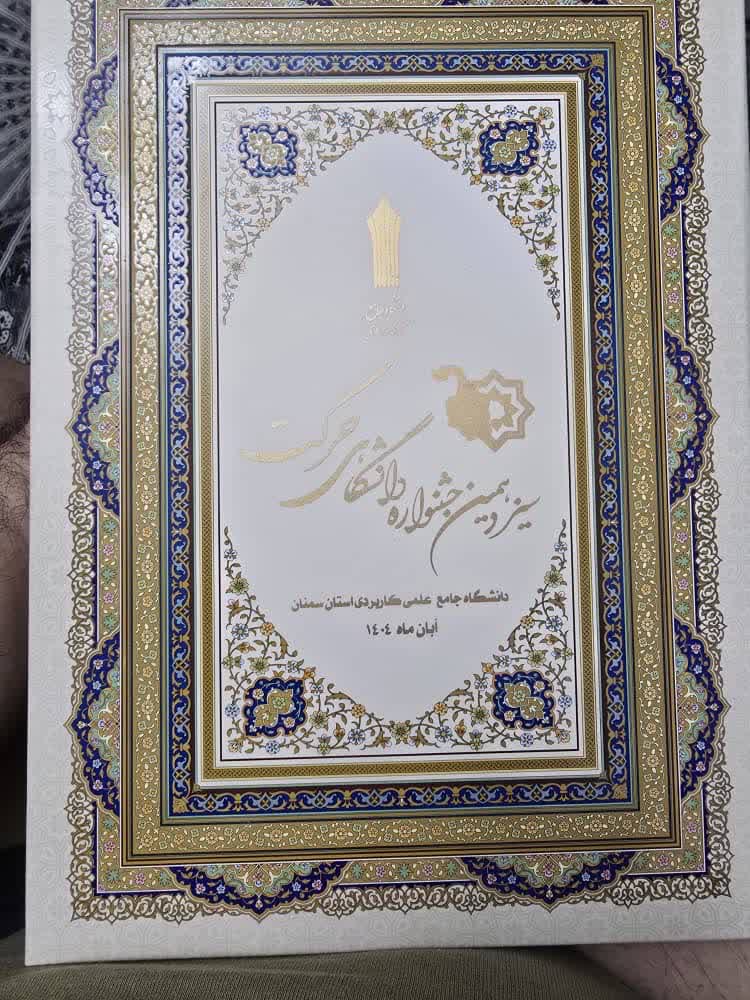 سیزدهمین جشنواره دانشگاهی حرکت
دانشگاه جامع علمی کاربردی استان سمنان
آبان ماه ۱۴۰۴